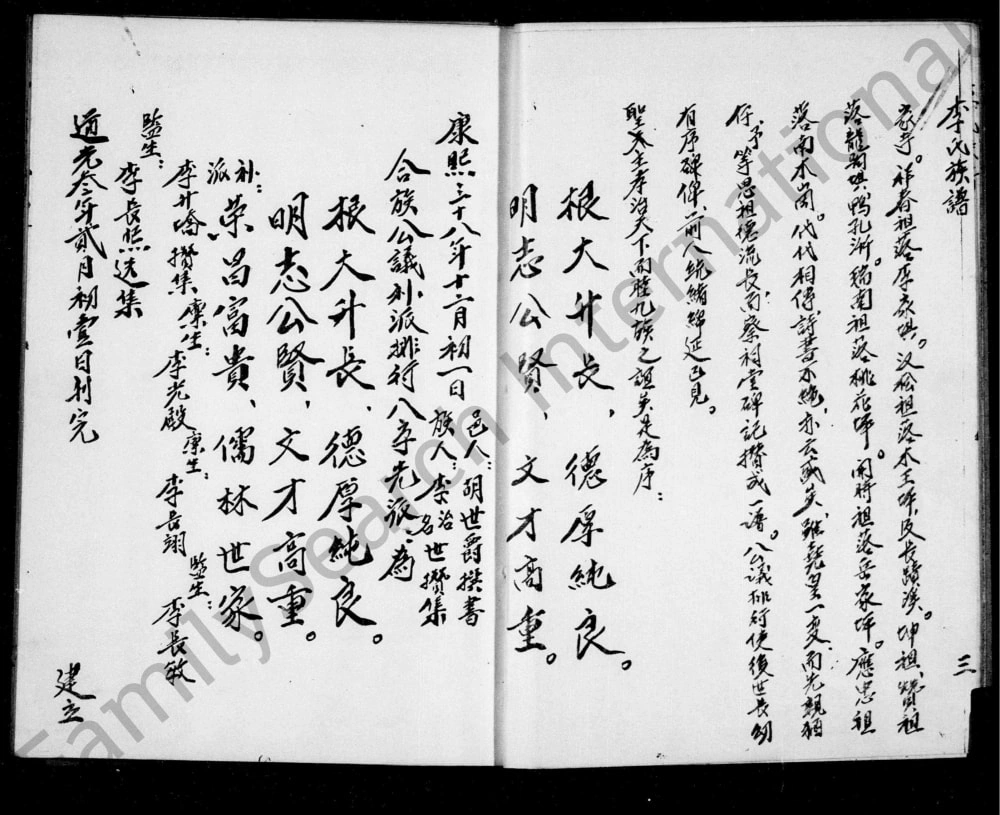 李氏族譜
家亨。祥春祖落厚家嘴。汉松祖落木王坪及長蹟溪。坤祖、贊祖
落龍陽嘴、鴨孔泝。瑞南祖落桃花坪。開時祖落岳家坪。應忠祖
落南木崗。代代相傳詩書不绝,亦云或矣,雖堯里一变,而先親猶
存,予等思祖德流長而察祠堂碑記攢成一譜。八公議排行使後世長幼
有序尊俾,前人統緒綿延已見。
聖天主孝治天下而睦九族之誼矣是為序:
根大升長, 德厚純良。
明志公賢, 文才高重。
三
康熙三十八年十二月初一日 邑人:胡世爵撰書
族人:李治名世攢集
合族公議补派排行八字先派:為
根大升長, 德厚純良。
明志公賢, 文才高重。
补派: 荣昌富貴, 儒林世家。
李升嵪攢集 廪生:李光殿 廪生:李岳翊 監生:李長敏
監生:李長熙选集
道光叁年貳月初壹日刊完
建立
FamilySearch International